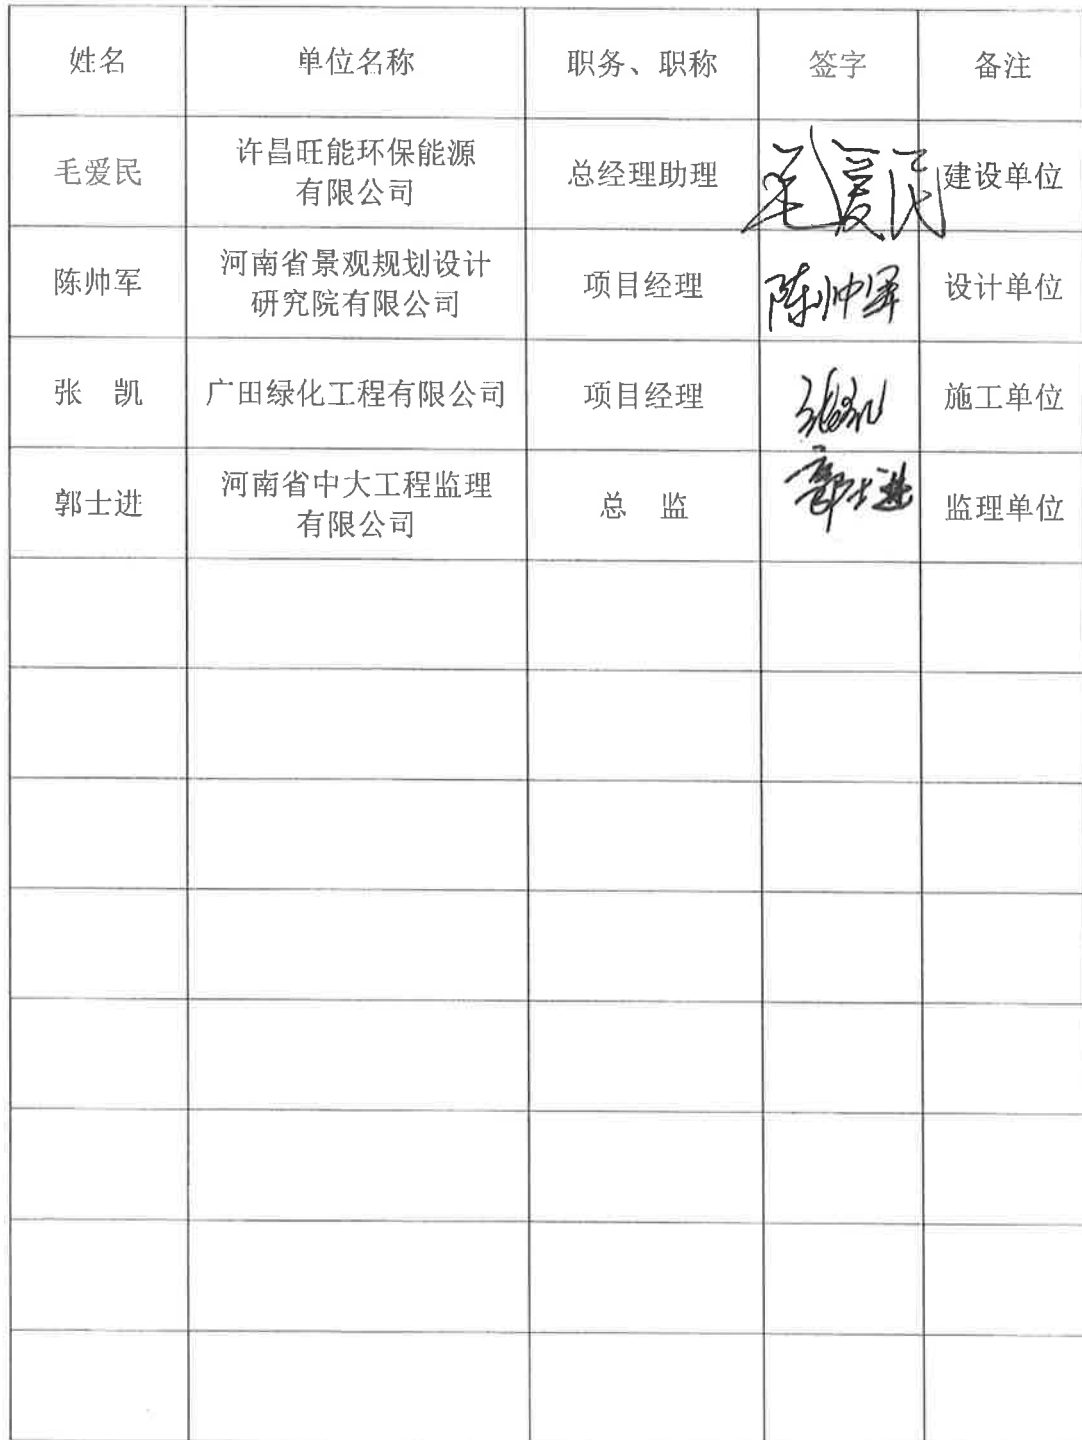 姓名 单位名称 职务、职称 签字 备注
许昌旺能环保能源
毛爱民 有限公司 总经理助理 毛爱民 建设单位
河南省景观规划设计
陈帅军 研究院有限公司 项目经理 陈帅军 设计单位
张 凯 广田绿化工程有限公司 项目经理 张凯 施工单位
河南省中大工程监理
郭士进 有限公司 总 监 郭士进 监理单位